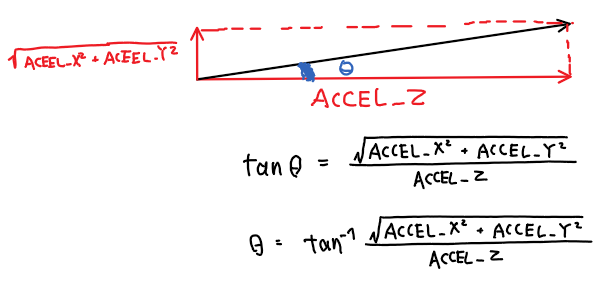 √ACEEL_X² + ACEEL_Y²
θ
ACCEL_Z
tan θ = √ACCEL_X² + ACCEL_Y² / ACCEL_Z
θ = tan⁻¹ √ACCEL_X² + ACCEL_Y² / ACCEL_Z